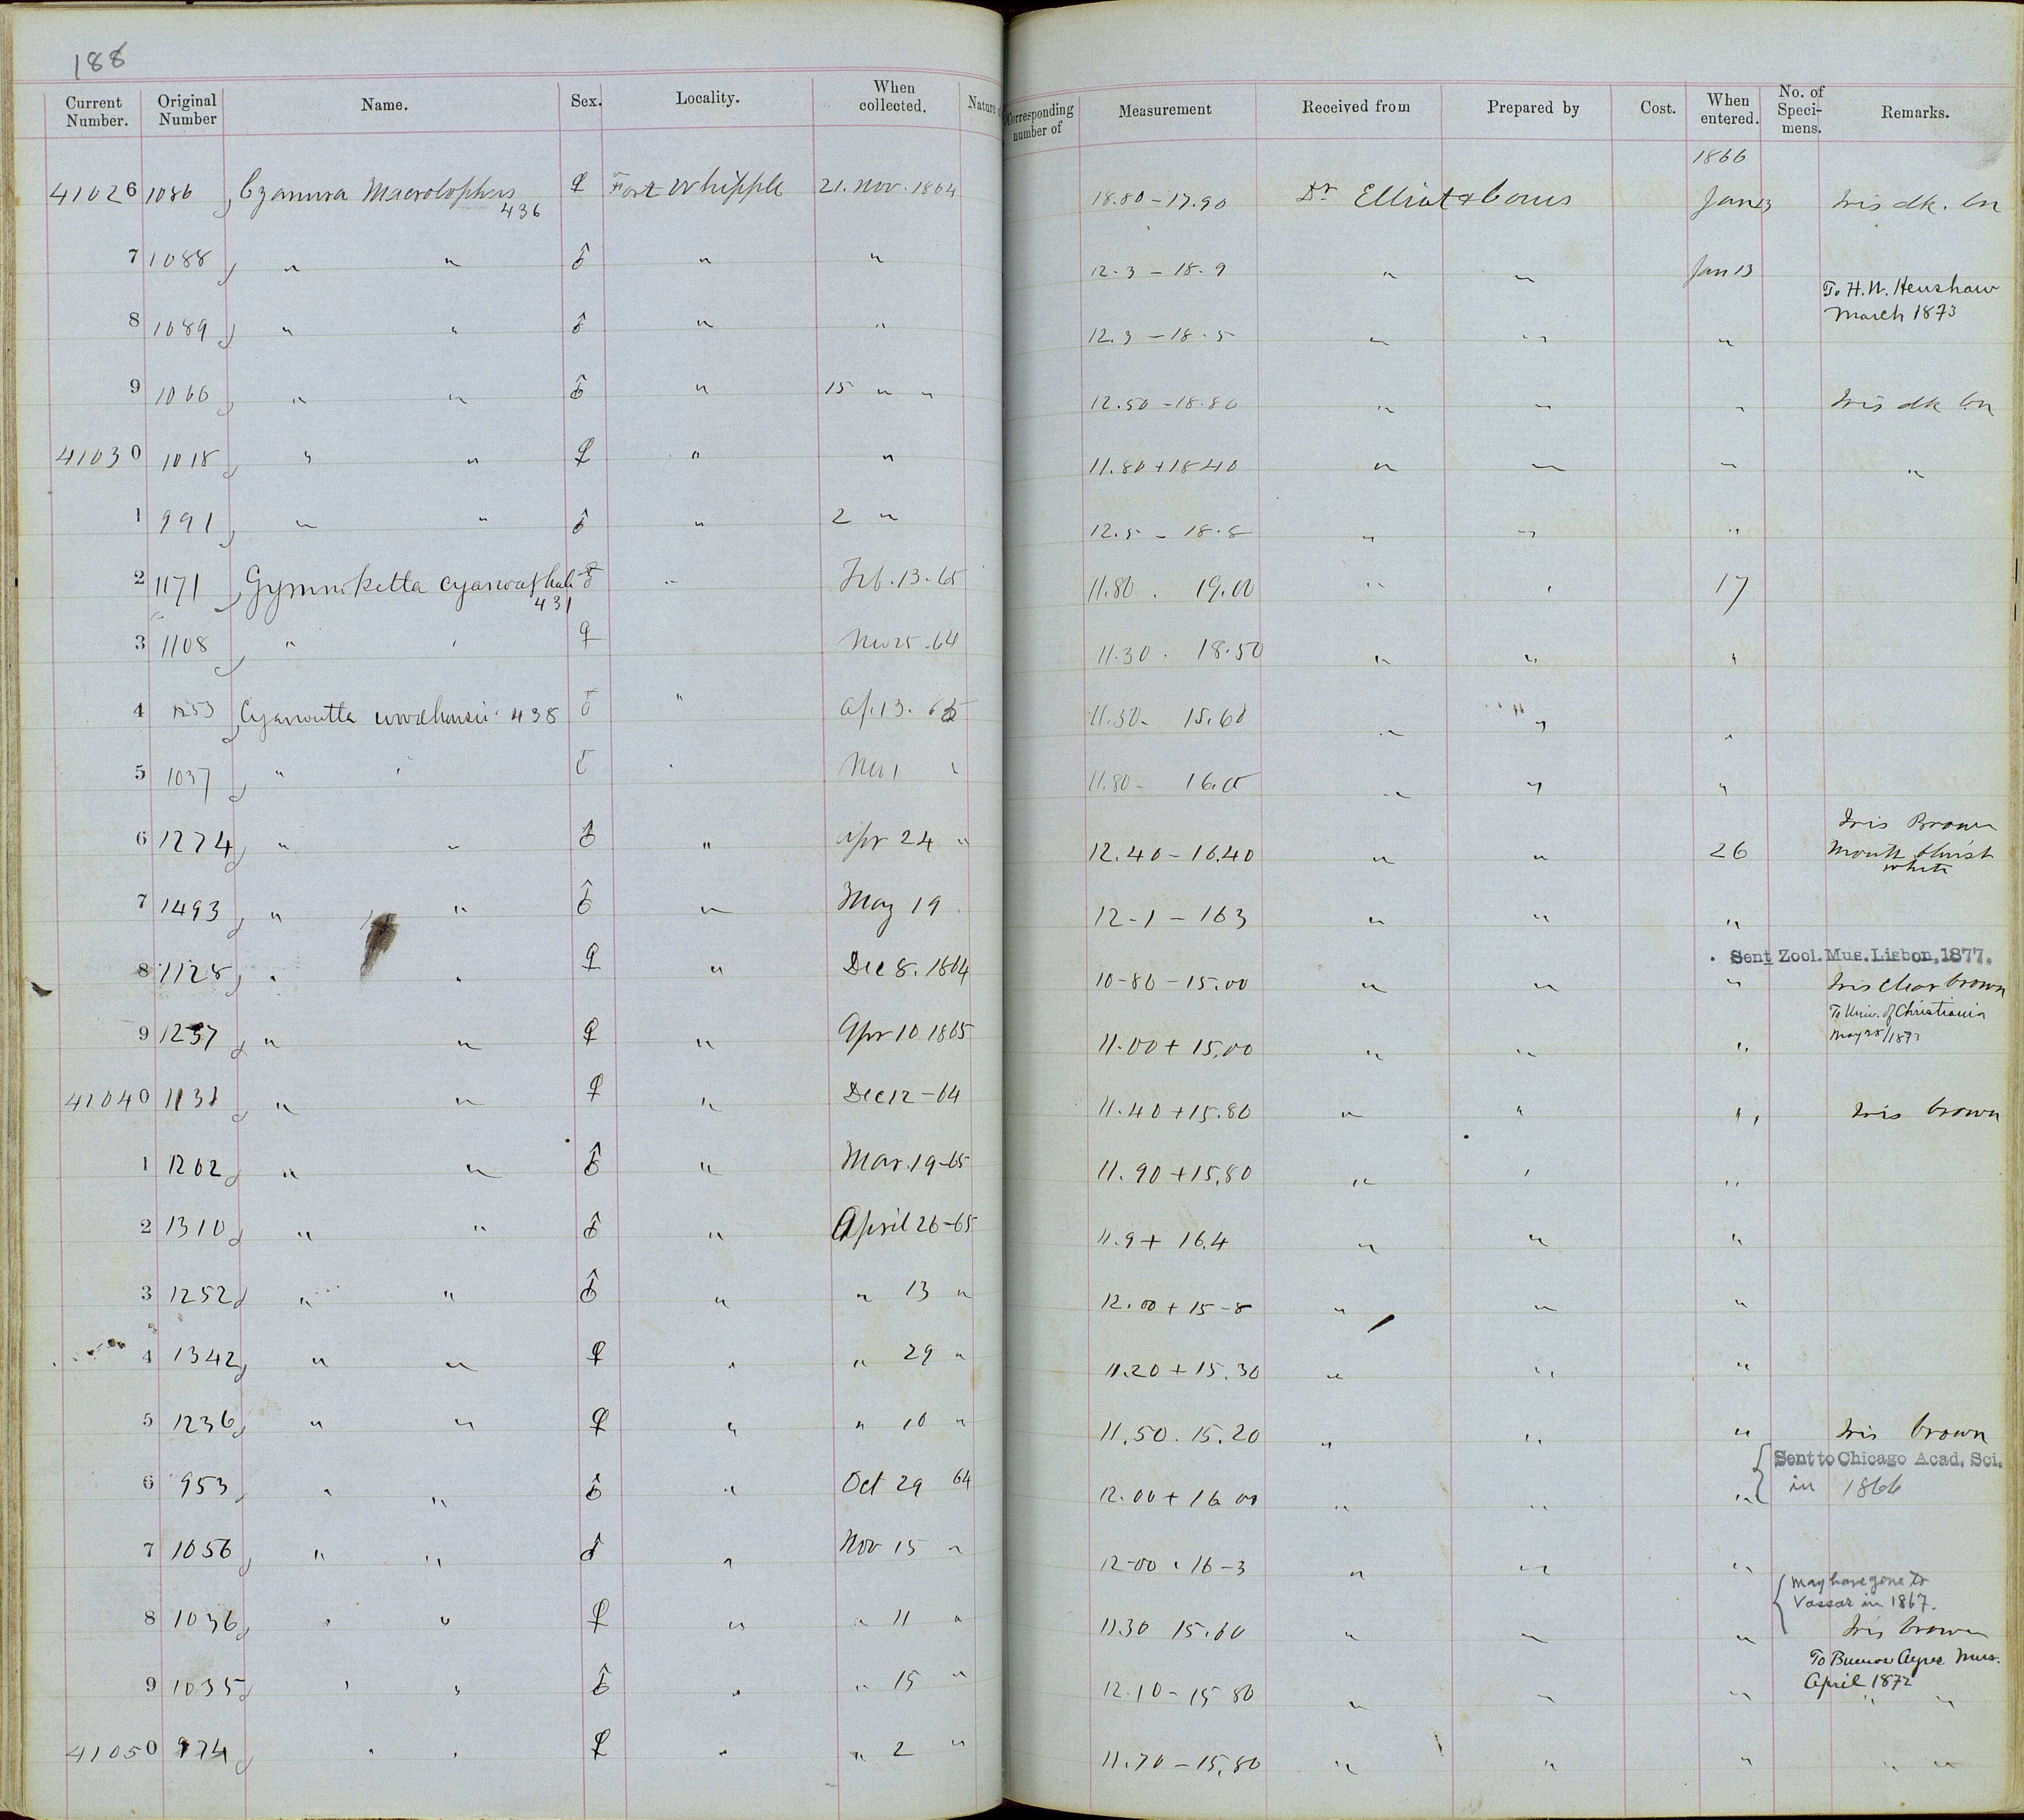 188
Current Number. Original Number Name. Sex. Locality. When collected. Nature Corresponding number of Measurement Received from Prepared by Cost. When entered. No. of Speci-mens. Remarks.
1866
41026 1086 Cyanura Macrolophus 436 ♀ Fort Whipple 21. Nov. 1864 18.80 - 17.90 Dr Elliott Coues Jan 13 Iris dk. bn
7 1088 " " ♂ " " 12.3 - 18.9 " " Jan 13
To H. W. Henshaw March 1873
8 1089 " " ♂ " " 12.3 - 18.5 " " "
9 1066 " " ♂ " 15 " " 12.50 - 18.80 " " " Iris dk bn
41030 1018 " " ♀ " " 11.80 + 18 40 " " " "
1 991 " " ♂ " 2 " 12.5 - 18.8 " " "
2 1171 431 " Feb. 13. 65 11.80 . 19.00 " " 17
3 1108 " " ♀ Nov 25. 64 11.30 . 18.50 " " "
4 1253 438 ♂ " Ap. 13. 65 11.50 - 15.60 " " "
5 1037 " " ♂ " Nov 1 " 11.80 - " " "
6 1274 " " ♂ " Apr 24 " 12.40 - 16.40 " " 26 Iris Brown Mouth bluish white
7 1493 " " ♂ " May 19 12-1 - 163 " " "
Sent Zool. Mus. Lisbon, 1877.
8 1128 " " ♀ " Dec 8. 1864 10-80 - 15.00 " " " Iris clear brown
To Univ. of Christiania
May 28/187
9 1237 " " ♀ " Apr 10 1865 11.00 + 15.00 " " "
41040 1131 " " ♀ " Dec 12 - 64 11.40 + 15.80 " " " Iris brown
1 1202 " " ♂ " Mar. 19-65 11.90 + 15.80 " " "
2 1310 " " ♂ " April 26-65 11.9 + 16.4 " " "
3 1252 " " ♂ " " 13 " 12.00 + 15-8 " " "
4 1342 " " ♀ " " 29 " 11.20 + 15.30 " " "
5 1236 " " ♀ " " 10 " 11.50. 15.20 " " " Iris brown
Sent to Chicago Acad. Sci.
in 1866
6 953 " " ♂ " Oct 29 64 12.00 + 16 00 " " "
7 1056 " " ♂ " Nov 15 " 12-00 . 16-3 " " "
May have gone to
Vassar in 1867.
8 1036 " " ♀ " " 11 " 11.30 15.60 " " " Iris brown
To Buenos Ayres Mus.
April 1872
9 1035 " " ♂ " " 15 " 12.10 - 15 80 " " " " "
41050 974 " " ♀ " " 2 " 11.70 - 15.80 " " " " "